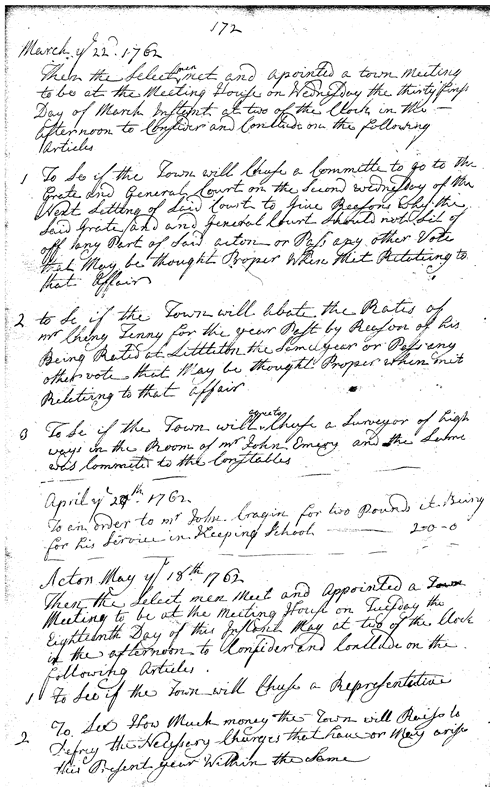 172
March ye 22d. 1762
Then the Select men met and apointed a town Meeting
to be at the Meeting House on Wednesday the thirty first
Day of March Instant at two of the Clock in the
afternoon to Consider and Conclude on the following
Articles
1 To Se if the Town will Chuse a Committe to go to the
Grate and General Court on the Second wednesday of the
Next Setting of Said Court to Give Reasons why the
Said Grate and and General Court Should not Sit of
off any Part of Said acton or Pass any other Vote
that May be thought Proper When Met Relateing to
that Affair
2 to Se if the Town will abate the Rates of
mr Tenny for the year Past by Reason of his
Being Rated at Littleton the Same year or Pass any
other vote that May be thought Proper when mit
Relateing to that affair
3 To Se if the Town will Chuse a Surveyor of high
ways in the Room of mr John Emery and the Same
was Committed to the Constables
April ye 29th. 1762
To an order to mr John Cragin for two Pounds it Being
for his Service in Keeping School 2-0-0
Acton May ye 18th 1762
Then the Select men Meet and Appointed a Town
Meeting to be at the Meeting House on Tuesday the
Eighteenth Day of this Instant May at two of the Clock
in the afternoon to Consider and Conllude on the
following Articles.
1 To See if the Town will Chuse a Representative
2 To See How Much money the Town will Raise to
Defray the Nessesery Charges that have or May arise
this Present year Within the Same